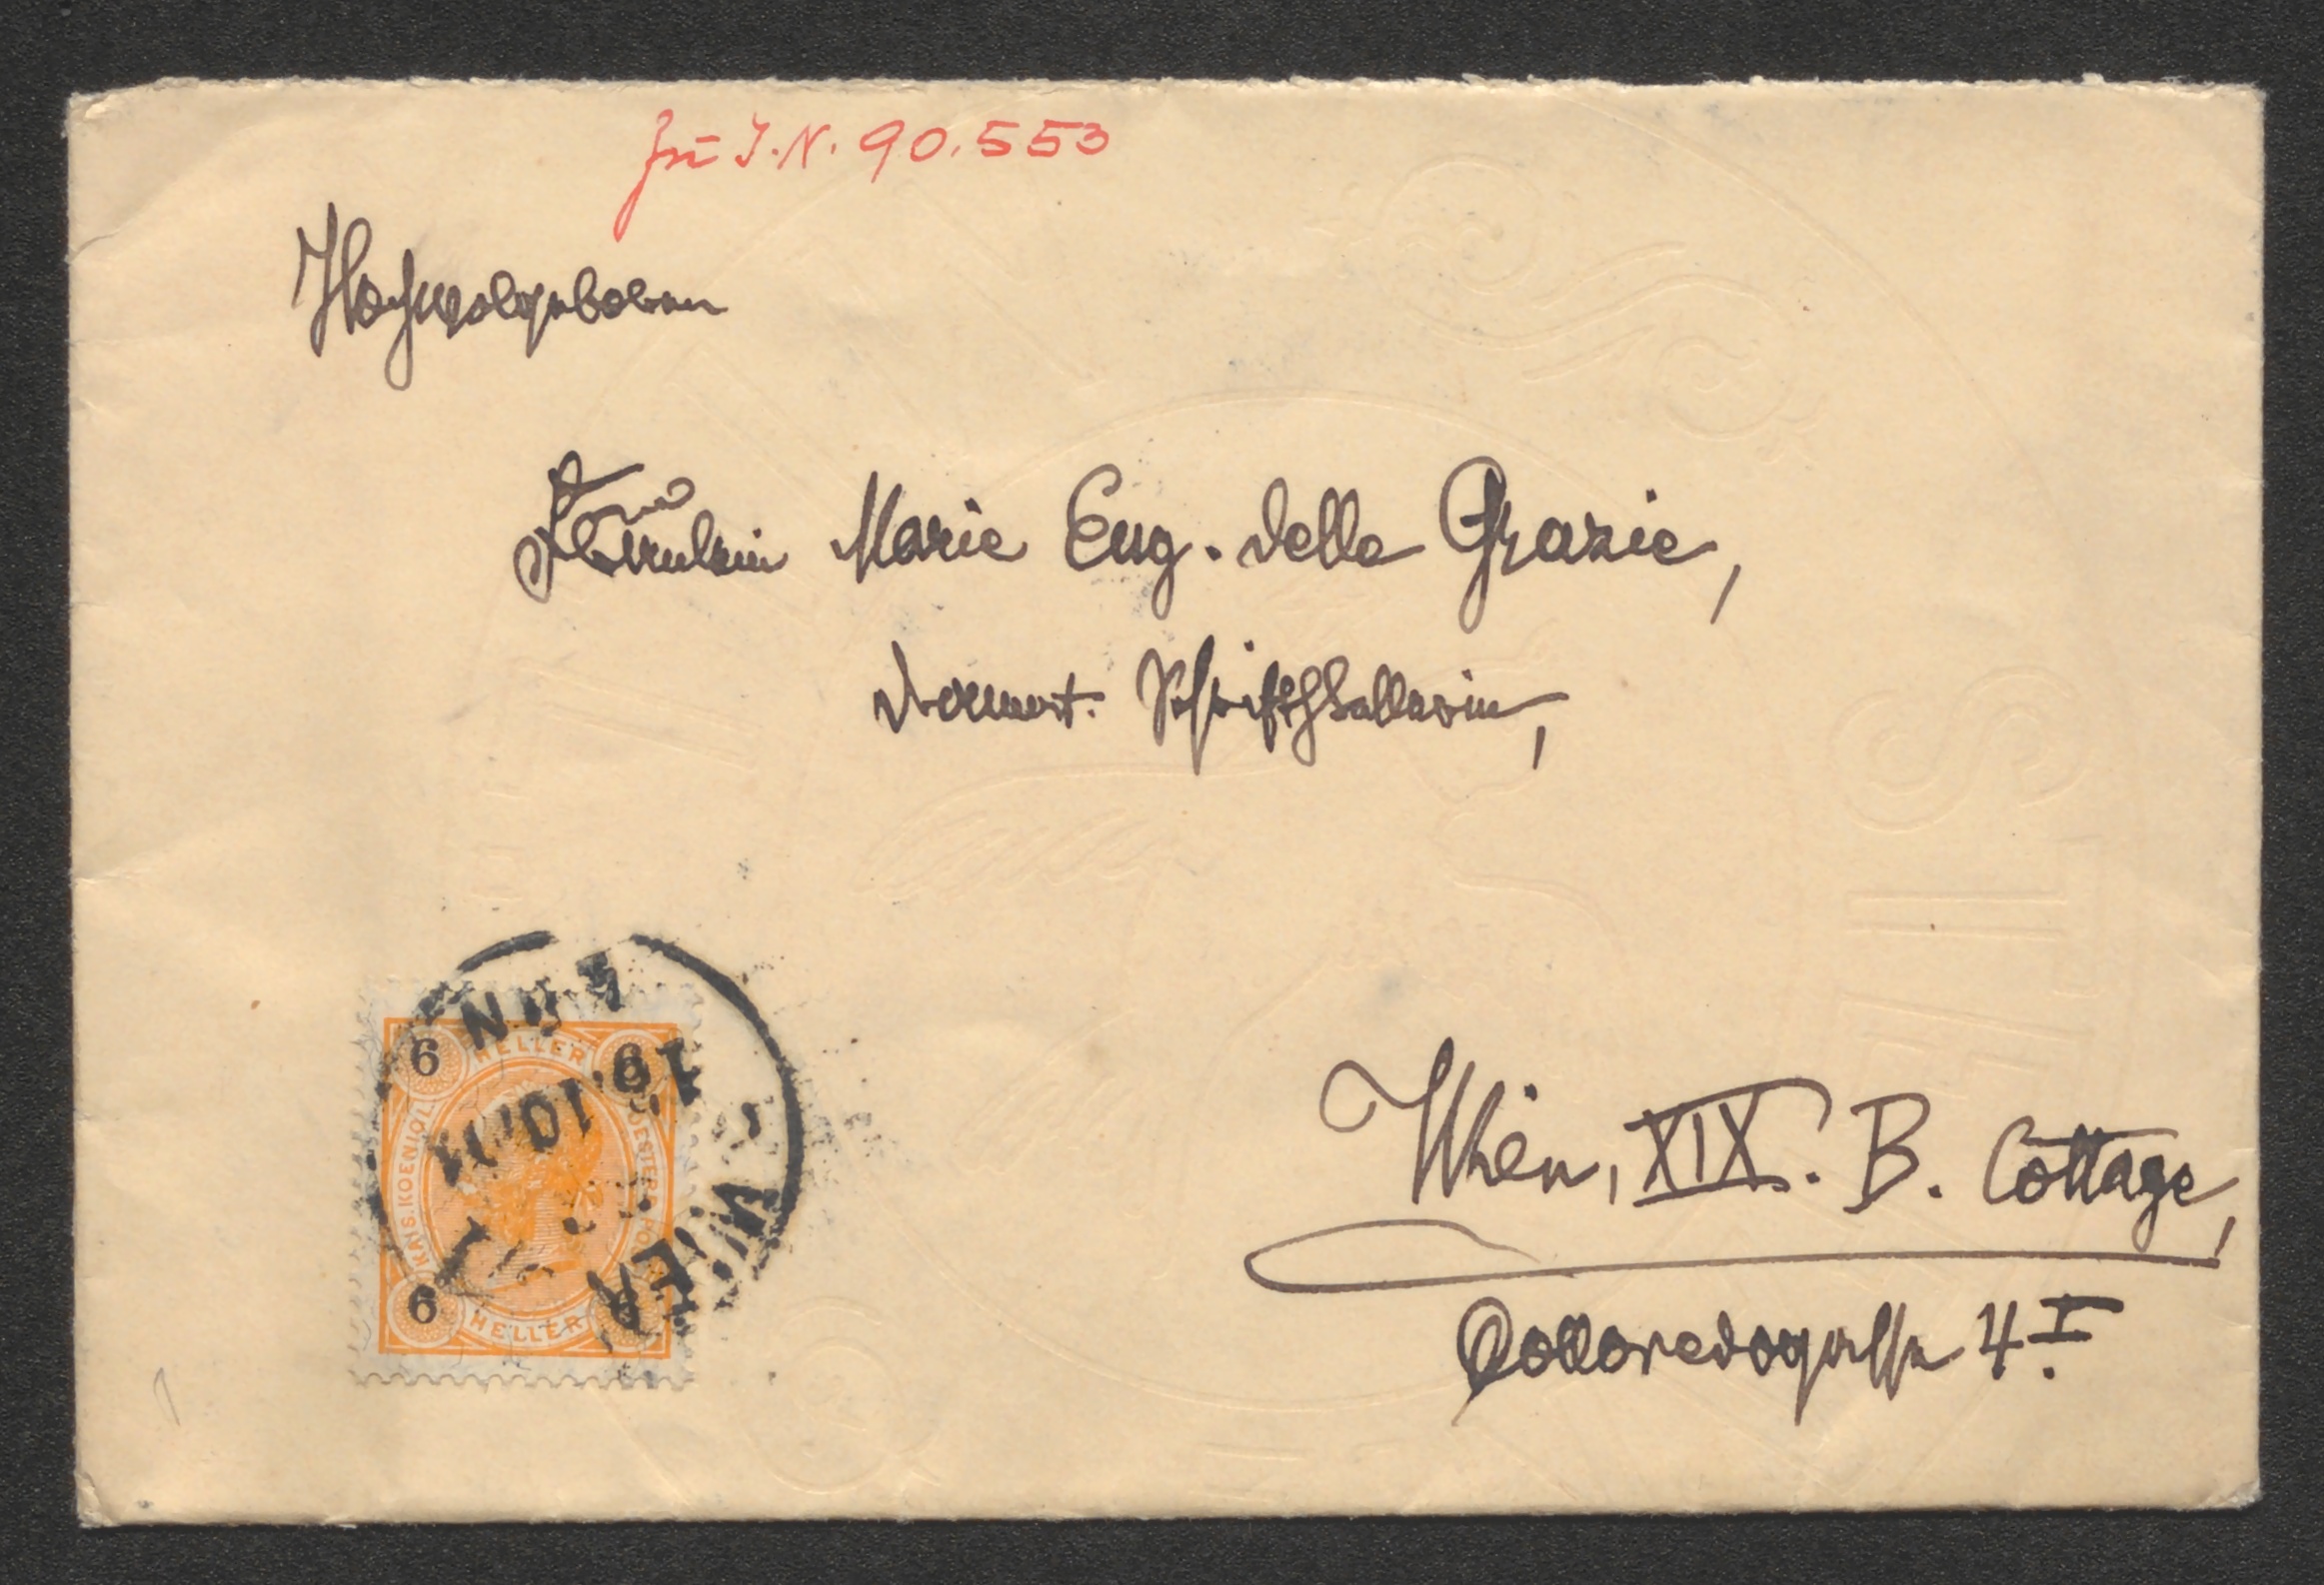 Zu I.N. 90.553
Hochwolgeboren
Frau
Fräulein Marie Eug. delle Grazie,
Schriftstellerin,
Wien, XIX. B. Cottage,
Colloredogasse 4 I.
6 HELLER 6
KAIS. KOENIGL.
OESTERR. POST
6 HELLER
WIEN
10.01